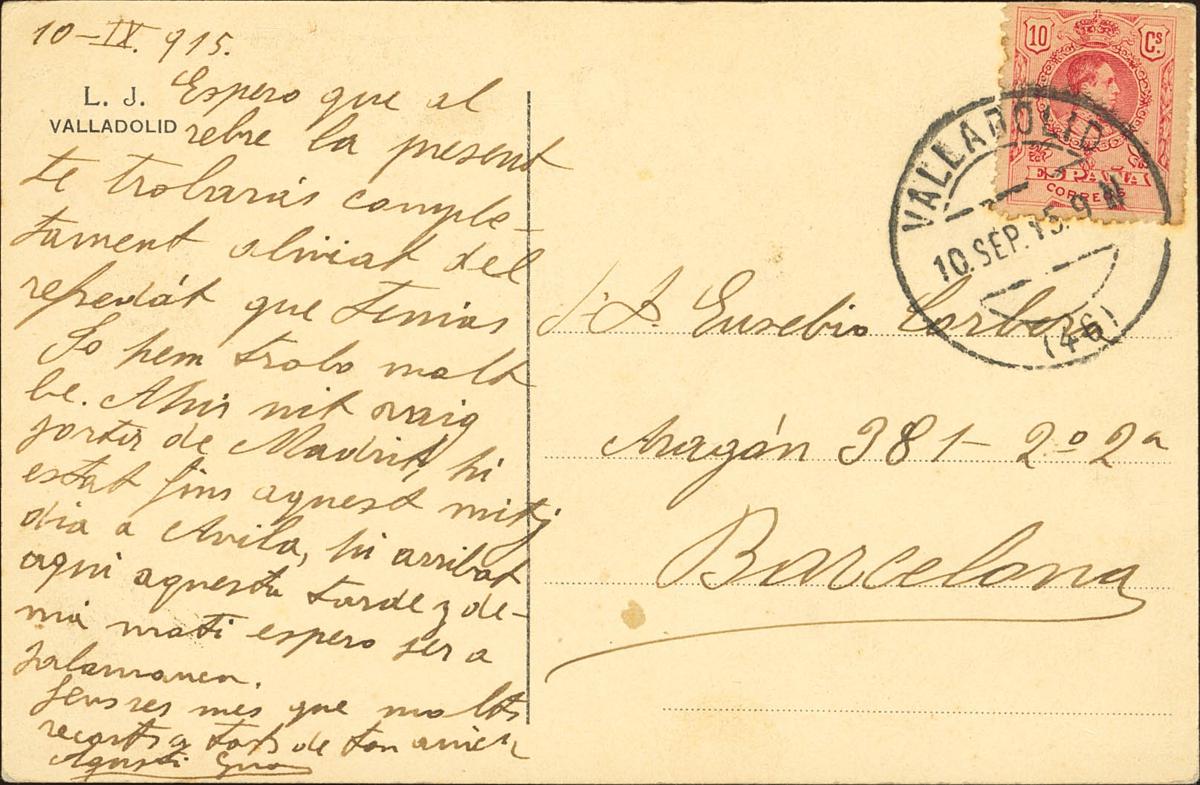 10-IX. 915.
L. J.
VALLADOLID
Espero que al
rebre la present
te trobarás comple-
tament aliviat del
refredát que tenias
Jo hem trobo molt
be. Ahir nit vaig
sortir de Madrit, hi
estat fins aquest mitj
dia a Avila, hi arribat
aqui aquesta tarde y de-
má mati espero ser a
Salamanca.
Sens res més que molts
recorts a tots de ton amich
Agustí
10 Cs.
ESPAÑA
CORREOS
VALLADOLID
10.SEP.15. 9 N
(46)
Eusebio
Aragón 381- 2º 2ª
Barcelona